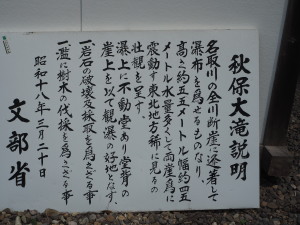 秋保大滝説明
名取川の全川断崖に逆着して
瀑布を為せるものなり
高さ約五五メートル幅約四五
メートル水量多くして両崖為に
震動す東北地方稀に見るの
壮観を呈す
瀑上に不動堂あり堂背の
崖上を以て観瀑の好地となす
一、岩石の破壊及採取を為さざる事
一、濫に樹木の伐採を為さざる事
昭和十八年三月二十日
文部省